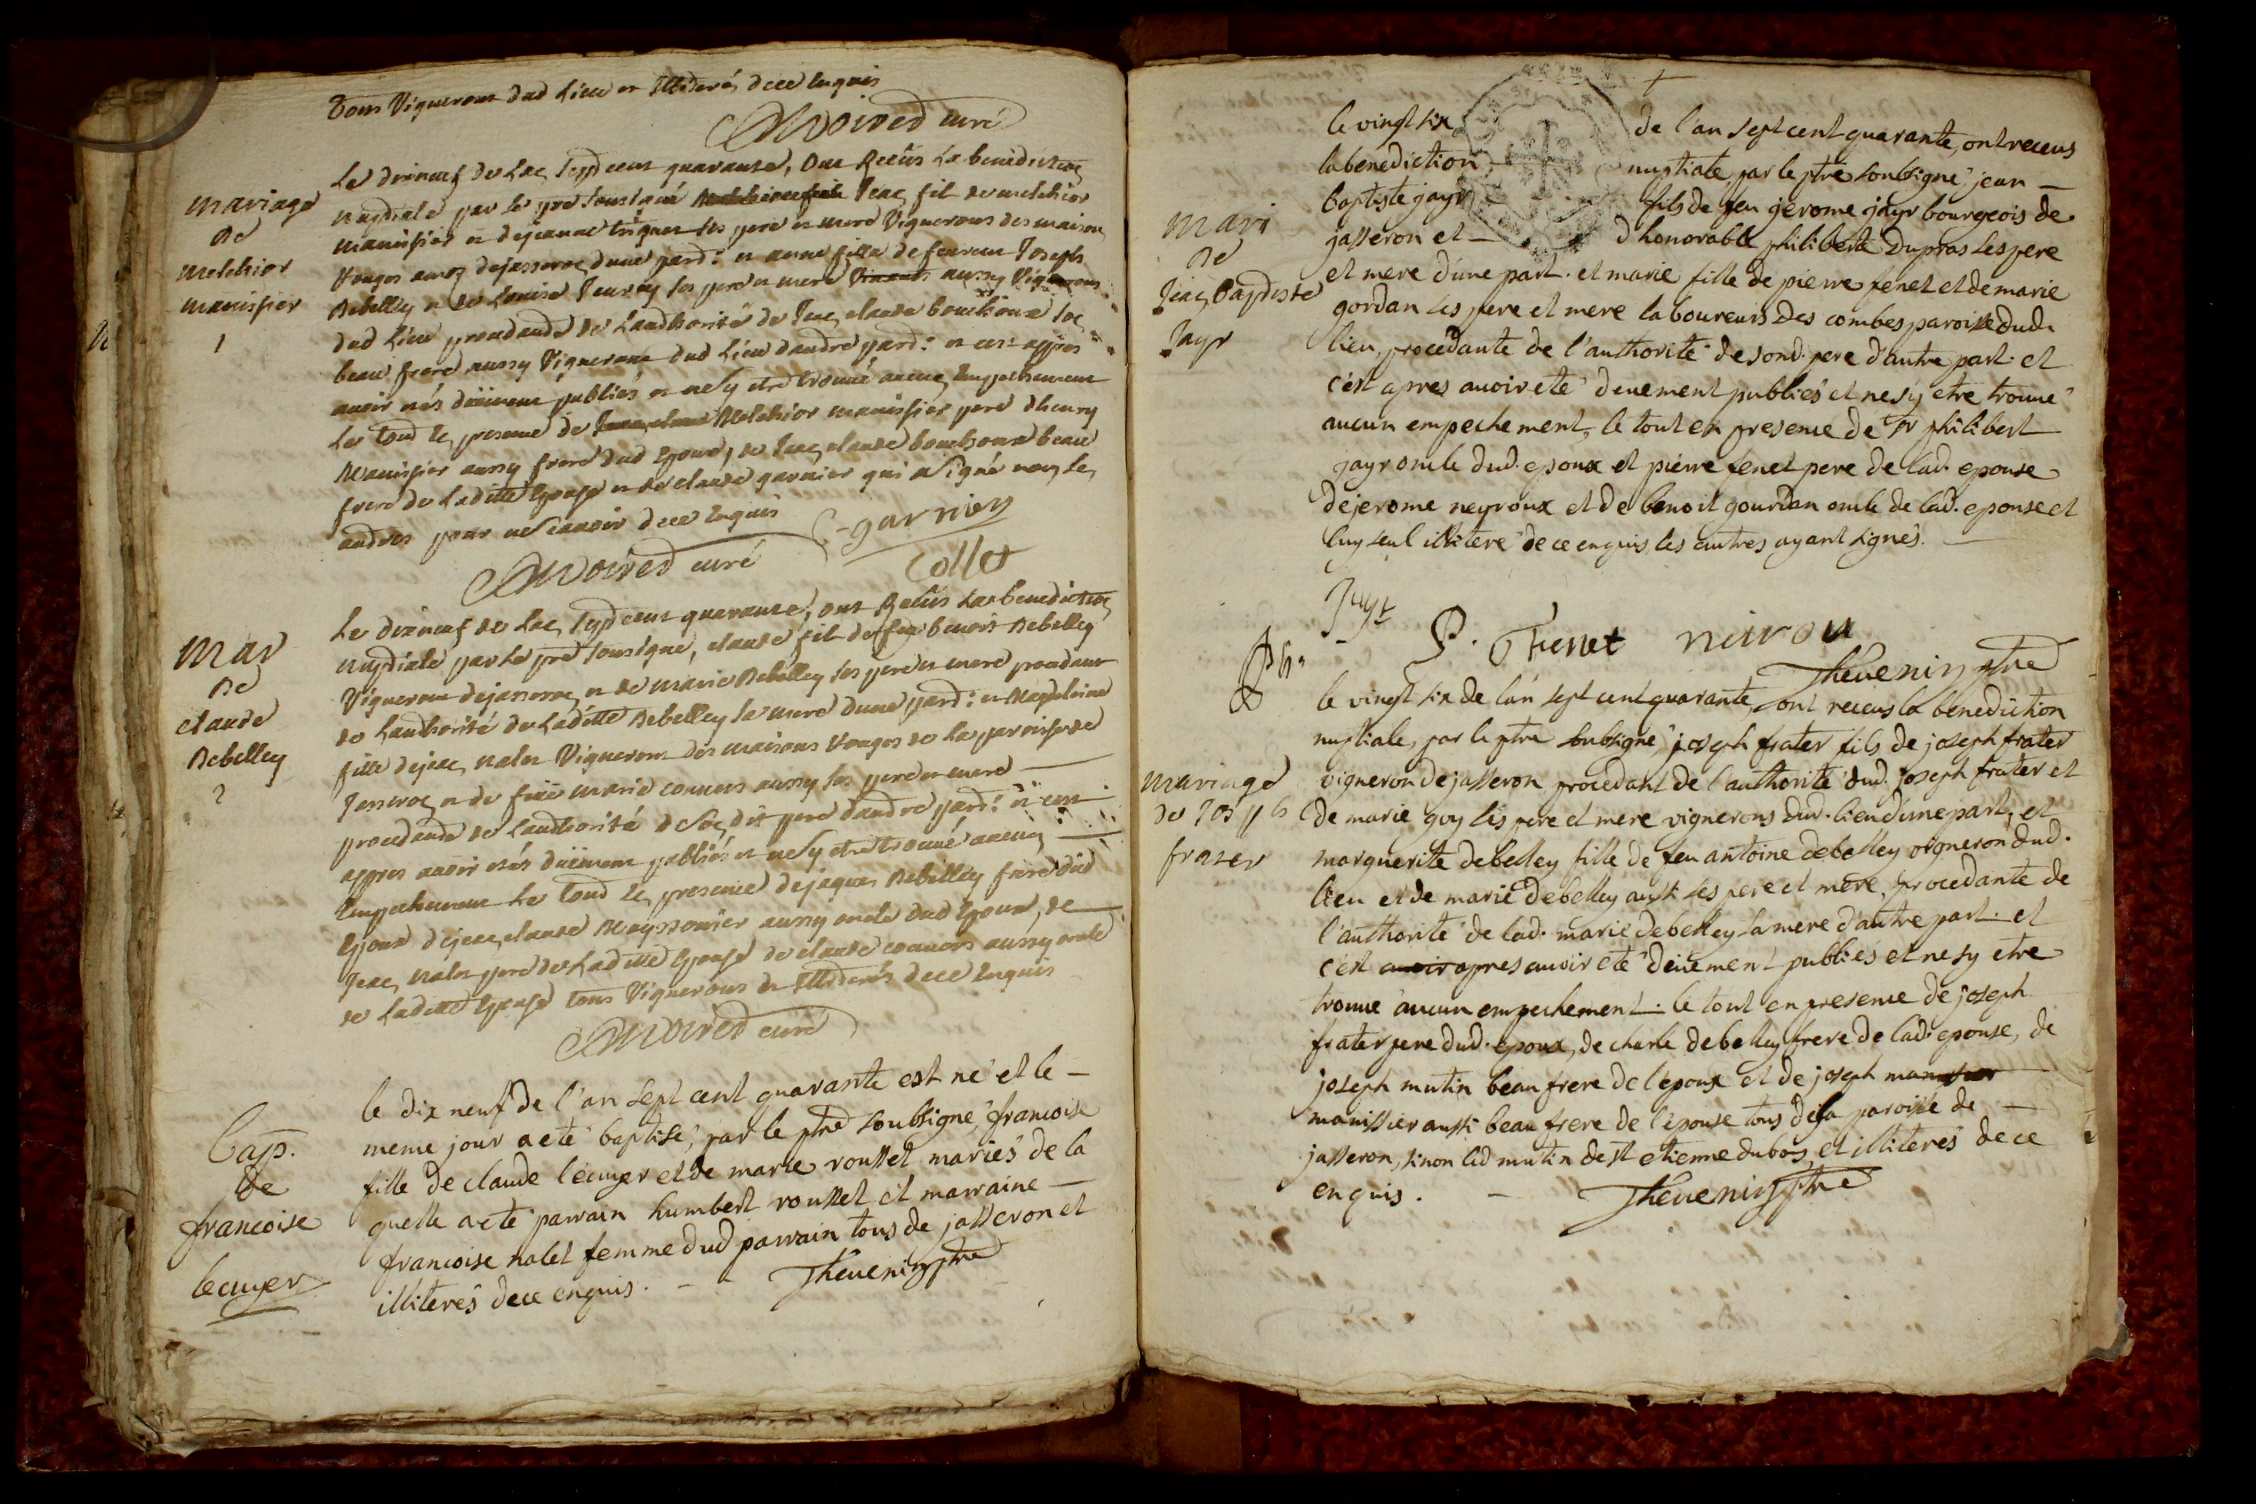 Tous Vignerons dud Lieu et Illiterés de ce Enquis
Moired curé
Mariage
de
melchior
manissier
1
Le dixneuf de Lan sept cent quarante, ont Reçûs La benediction
nuptiale par Le ptre soussigné Jean fil de melchior
manissier et de jeanne ses pere et mere Vignerons des maisons
de jasseron dune part: et anne fille de feu Joseph
Debelley et de Louise ses pere et mere aussy Vignerons
dud Lieu procedante de Lauthorité de Jean claude bouchoux son
beau frere aussy Vigneron dud Lieu dautre part: et cest appres
avoir etés düement publiés et ne sy etre trouvé aucun Empechement
Le tout En presence de Melchior manissier pere dhenry
Manissier aussy frere dud Epoux, de Jean claude bouchoux beau
frere de Laditte Epouse et de claude garnier qui a signé non les
autres pour ne scavoir de ce Enquis
C garnier
Moired curé
Collet
Mar
de
claude
Debelley
2
Le dixneuf de Lan sept cent quarante, ont Reçûs La benediction
nuptiale par Le ptre soussigné, claude fil de feu benoit Debelley
Vigneron de jasseron et de marie Debelley ses pere et mere procedant
de Lauthorité de Laditte Debelley sa mere dune part: et Magdelaine
fille de jean nalet Vigneron des maisons de La paroisse de
Jasseron et de füe marie convers aussy ses pere et mere
procedante de Lauthorité de son dit pere dautre part: et cest
appres avoir etés düement publiés et ne sy etre trouvé aucun
Empechement Le tout En presence de jaques Debelley frere dud
Epoux de jean claude Meyssonier aussy oncle dud Epoux, de
Jean nalet pere de Laditte Epouse de claude convers aussy oncle
de Laditte Epouse tous Vignerons et Illiterés de ce Enquis
Moired curé
Bap.
de
francoise
lecuyer
le dix neuf de l'an sept cent quarante est né et le
meme jour a eté baptisé, par le ptre soubsigné, francoise
fille de claude lécuyer et de marie rousset mariés de la
quelle a eté parrain humbert rousset et marraine
francoise nalet femme dud parrain tous de jasseron et
illiterés de ce enquis.
Thevenin ptre
Mari
de
Jean Baptiste
Jayr
le vingt six de l'an sept cent quarante, ont receus
la benediction nuptiale par le ptre soubsigné jean
baptiste jayr fils de feu jerome jayr bourgeois de
jasseron et d'honorable philiberte Dupras ses pere
et mere d'une part. et marie fille de pierre fenet et de marie
gordan ses pere et mere laboureurs des combes paroisse dud.
lieu, procedante de l'authorité de sond. pere d'autre part. et
c'est apres avoir eté deuement publiés et ne sy etre trouvé
aucun empechement, le tout en presence de Sr philibert
jayr oncle dud. epoux et pierre fenet pere de lad. epouse
de jerome neyroux et de benoit gourdan oncle de lad. epouse et
luy seul illiteré de ce enquis les autres ayant signés.
Jayr
P. Fenet neirou
Thevenin ptre
Mariage
de Joseph
frater
le vingt six de l'an sept cent quarante, ont receus la benediction
nuptiale, par le ptre soubsigné joseph frater fils de joseph frater
vigneron de jasseron procedant de l'authorité dud. joseph frater et
de marie goy ses pere et mere vignerons dud. lieu d'une part, et
marguerite debelley fille de feu antoine debelley vigneron dud.
lieu et de marie debelley aussi ses pere et mere, procedante de
l'authorité de lad. marie debelley sa mere d'autre part. et
c'est avoir apres avoir eté deuement publiés et ne sy etre
trouvé aucun empechement. le tout en presence de joseph
frater pere dud. epoux, de charle debelley frere de lad. epouse, de
joseph mutin beau frere de l'epoux et de joseph
manissier aussi beau frere de l'epouse tous de la paroisse de
jasseron, sinon led mutin de st etienne du bois, et illiterés de ce
enquis.
Thevenin ptre